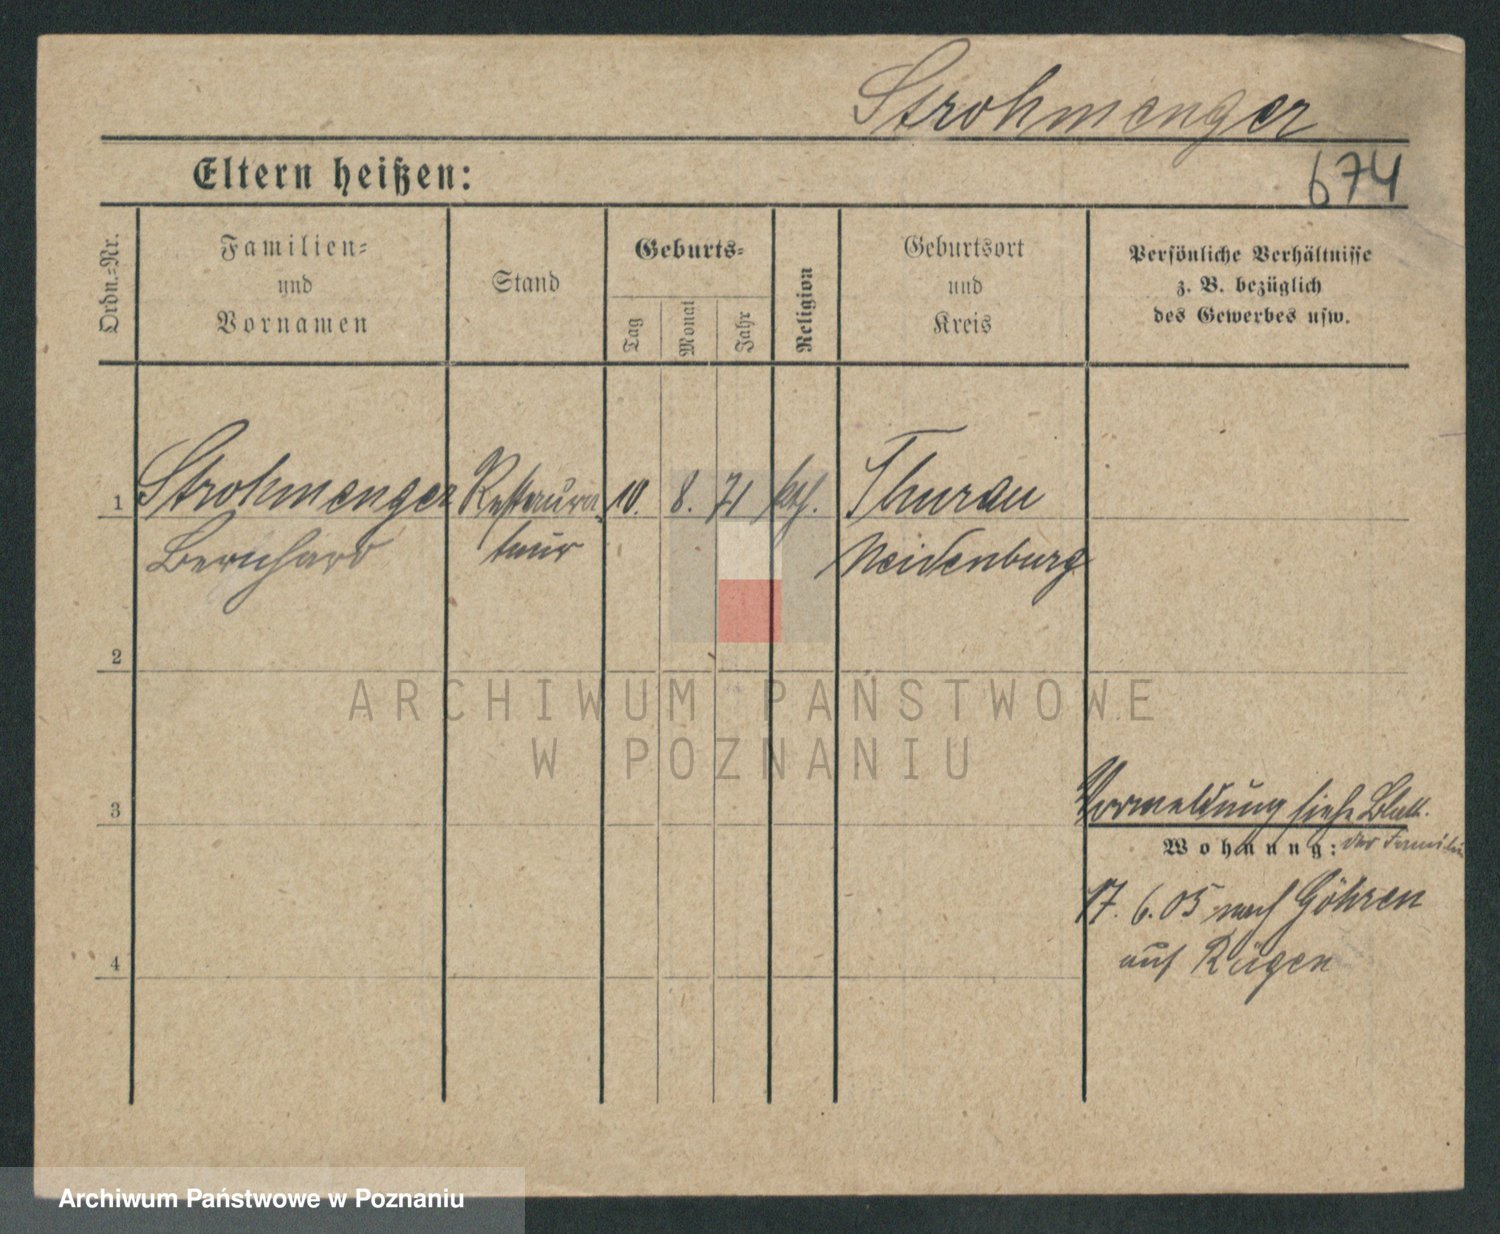 Strohmenger
Eltern heißen:
674
Ordn.=Nr.
Familien=
und
Vornamen
Stand
Geburts=
Tag
Monat
Jahr
Religion
Geburtsort
und
Kreis
Persönliche Verhältnisse
z. B. bezüglich
des Gewerbes usw.
1 Strohmenger Restaura 10. 8. 71 kth. Thurau
Bernhard teur Neidenburg
2
ARCHIWUM PAŃSTWOWE
W POZNANIU
Vormeldung siehe Blatt.
3
Wohnung: der Familie
17. 6. 05 nach Göhren
auf Rügen
4
Archiwum Państwowe w Poznaniu